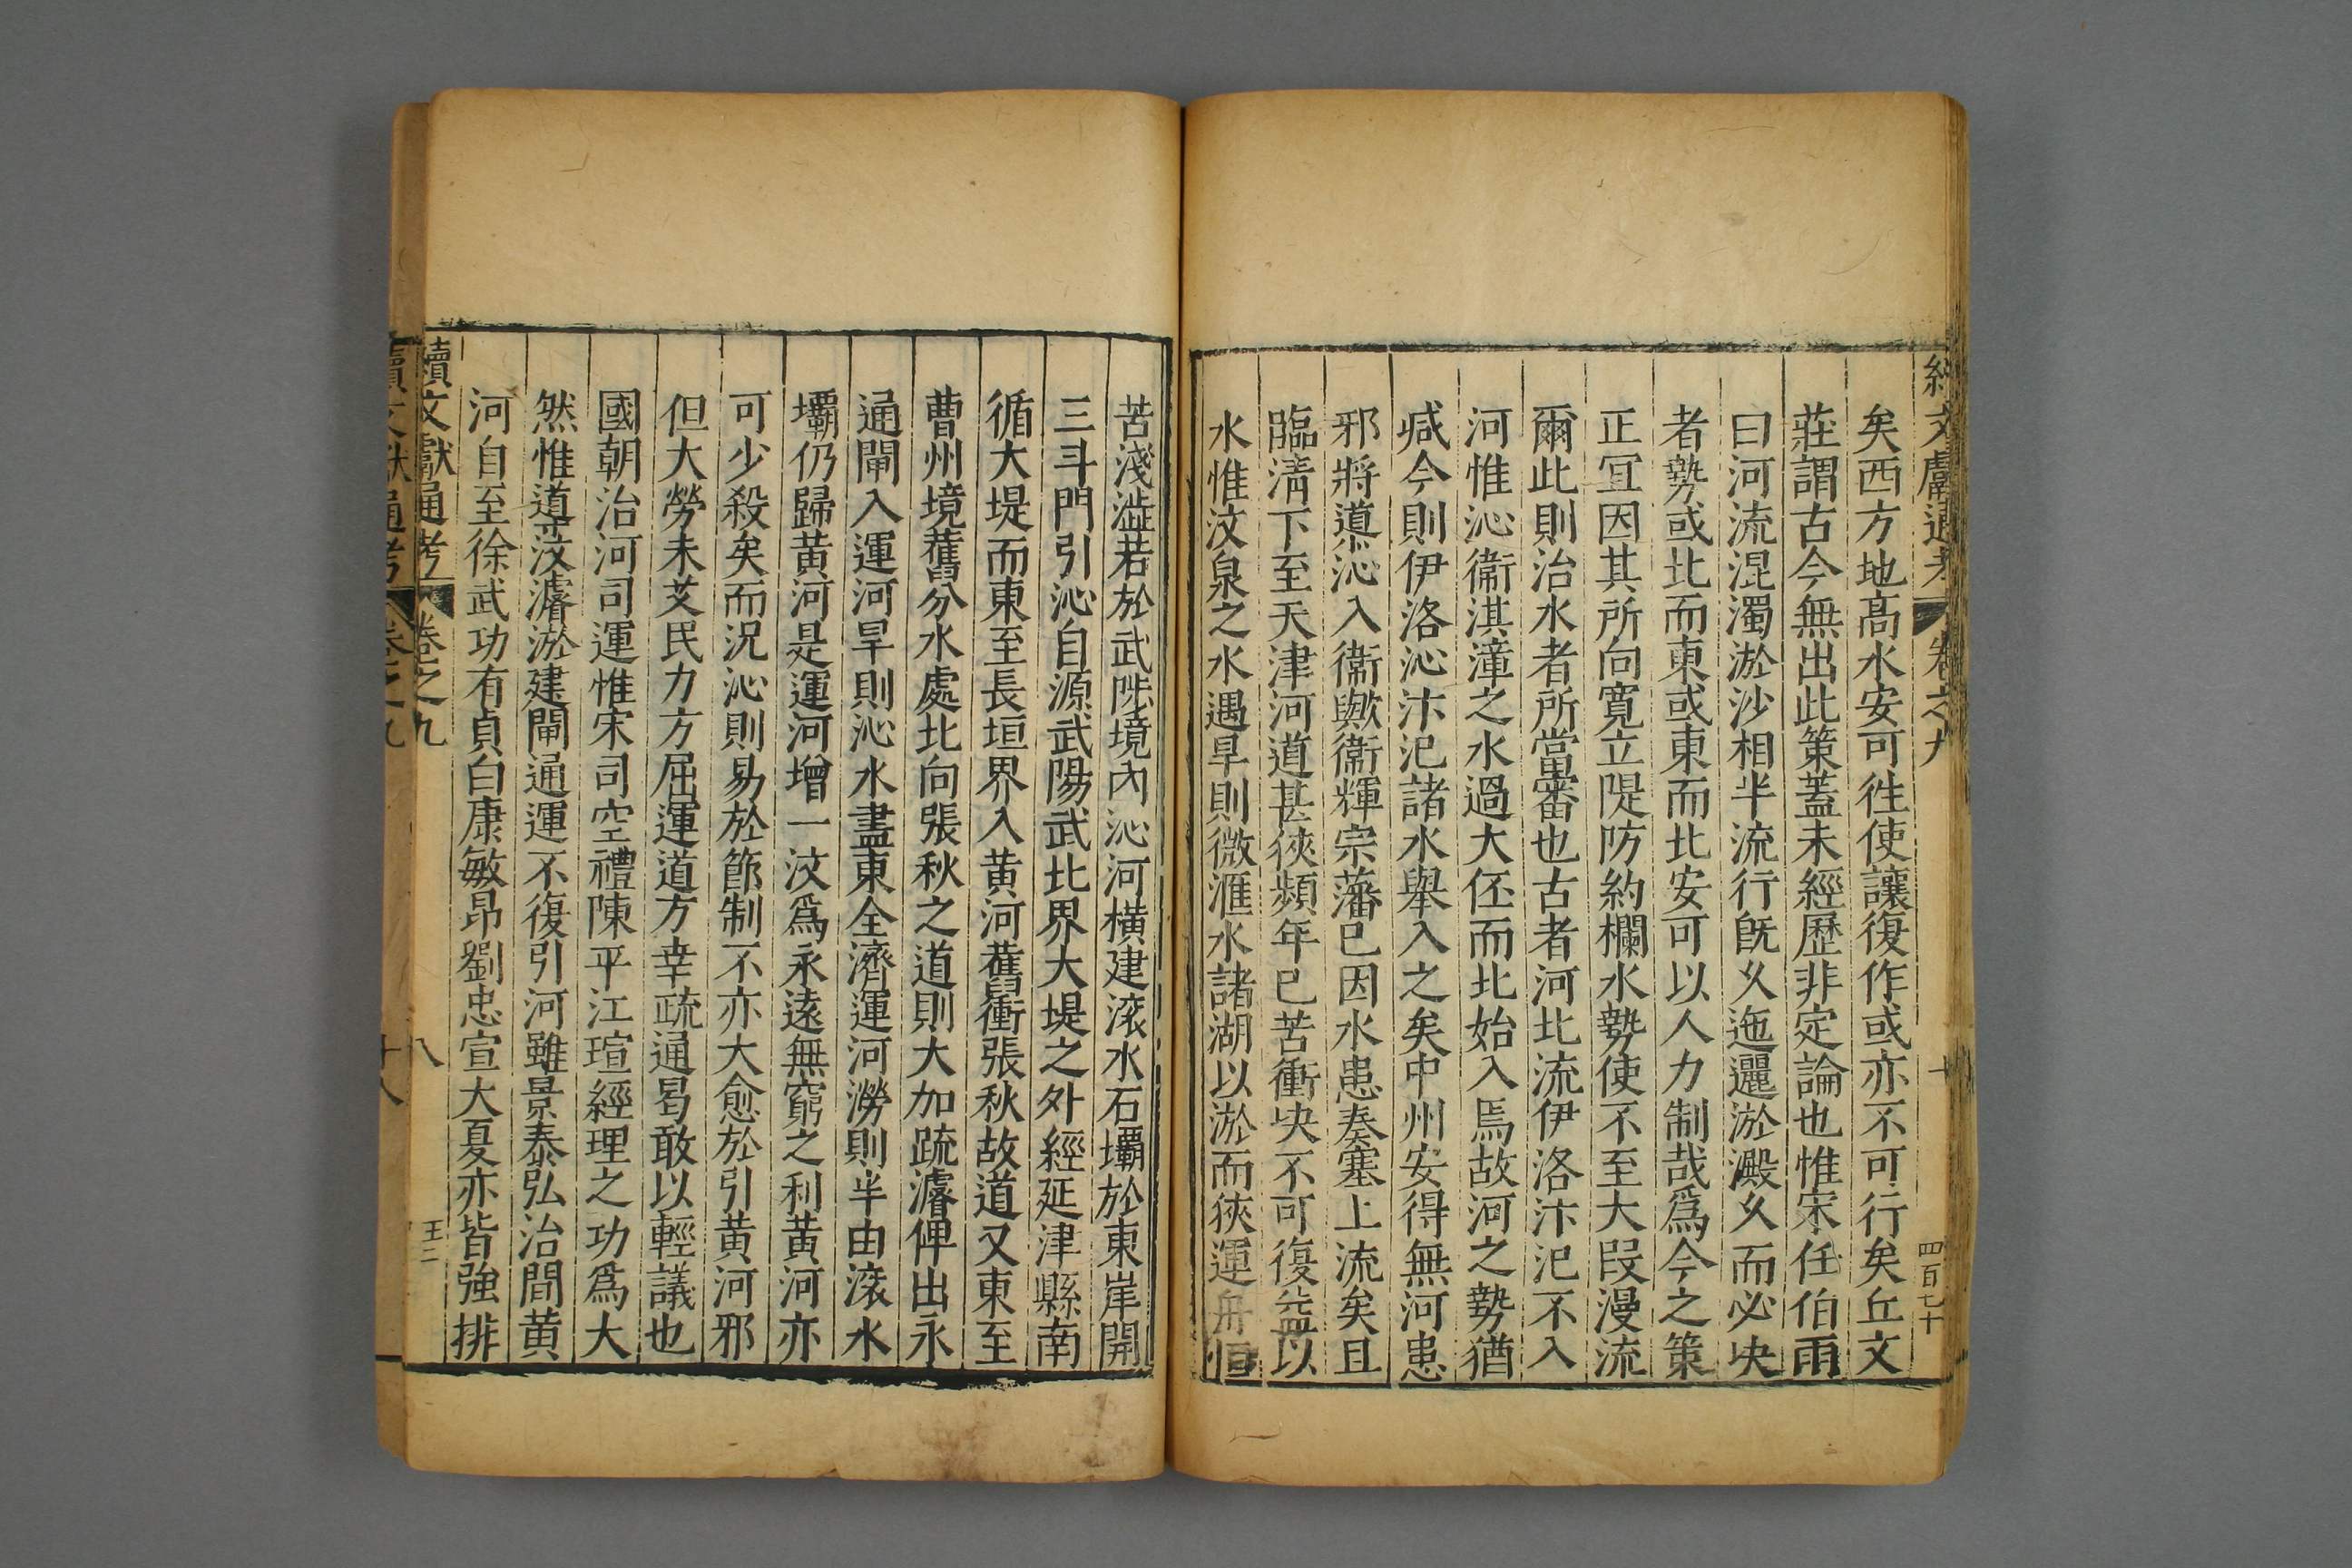 續文獻通考 卷之九
四百七十
矣西方地高水安可徃使讓復作或亦不可行矣丘文
莊謂古今無出此策蓋未經歷非定論也惟宋任伯雨
曰河流混濁淤沙相半流行旣乆迤邐淤澱乆而必决
者勢或北而東或東而北安可以人力制哉爲今之策
正冝因其所向寛立隄防約欄水勢使不至大叚漫流
爾此則治水者所當審也古者河北流伊洛汴汜不入
河惟沁衞淇漳之水過大伾而北始入焉故河之勢猶
咸今則伊洛沁汴汜諸水舉入之矣中州安得無河患
邪將導沁入衞歟衞輝宗藩已因水患奏塞上流矣且
臨清下至天津河道甚狹頻年已苦衝决不可復益以
水惟汶泉之水遇旱則微滙水諸湖以淤而狹運舟恒
苦淺澁若於武陟境內沁河横建滚水石壩於東岸開
三斗門引沁自源武陽武北界大堤之外經延津縣南
循大堤而東至長垣界入黄河舊衝張秋故道又東至
曹州境舊分水處北向張秋之道則大加疏濬俾出永
通閘入運河旱則沁水盡東全濟運河澇則半由滚水
壩仍歸黄河是運河增一汶爲永遠無窮之利黄河亦
可少殺矣而況沁則易於節制不亦大愈於引黄河邪
但大勞未艾民力方屈運道方幸疏通曷敢以輕議也
國朝治河司運惟宋司空禮陳平江瑄經理之功爲大
然惟導汶濬淤建閘通運不復引河雖景泰弘治間黄
河自至徐武功有貞白康敏昂劉忠宣大夏亦皆強排
續文獻通考 卷之九 八
王二
續文獻通考 卷之九 十八